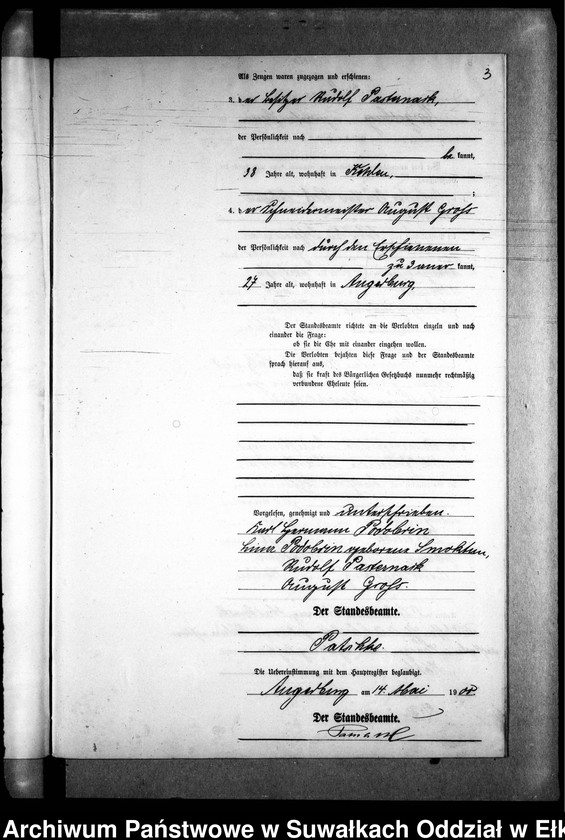 3
Als Zeugen waren zugezogen und erschienen:
3. der Besitzer Rudolf Pasternack,
der Persönlichkeit nach
be kannt,
38 Jahre alt, wohnhaft in Kehlen,
;
4. der Schneidermeister August Groß
der Persönlichkeit nach durch den Erschienenen
zu 3 aner kannt,
27 Jahre alt, wohnhaft in Angerburg.
Der Standesbeamte richtete an die Verlobten einzeln und nach
einander die Frage:
ob sie die Ehe mit einander eingehen wollen.
Die Verlobten bejahten diese Frage und der Standesbeamte
sprach hierauf aus,
daß sie kraft des Bürgerlichen Gesetzbuchs nunmehr rechtmäßig
verbundene Eheleute seien.
Vorgelesen, genehmigt und unterschrieben.
Karl Hermann Podobrin
Podobrin geborene Smoktun,
Rudolf Pasternack
August Groß.
Der Standesbeamte.
Die Uebereinstimmung mit dem Hauptregister beglaubigt.
Angerburg am 14. Mai 1900
Der Standesbeamte.
Archiwum Państwowe w Suwałkach Oddział w Ełk